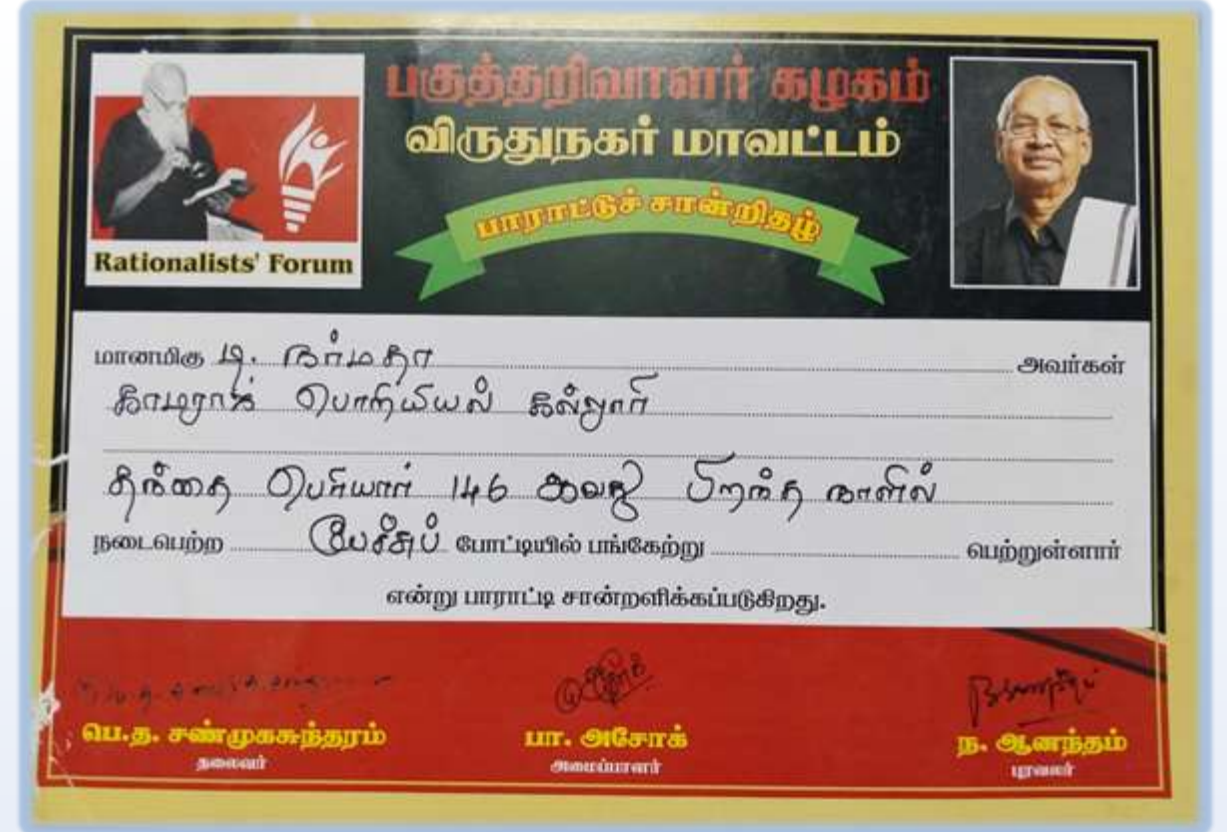 பகுத்தறிவாளர் கழகம்
விருதுநகர் மாவட்டம்
பாராட்டுச் சான்றிதழ்
Rationalists' Forum
மானமிகு டி. நர்மதா அவர்கள்
காமராஜ் பொறியியல் கல்லூரி
தந்தை பெரியார் 146 ஆவது பிறந்த நாளில்
நடைபெற்ற பேச்சுப் போட்டியில் பங்கேற்று பெற்றுள்ளார்
என்று பாராட்டி சான்றளிக்கப்படுகிறது.
பெ.த. சண்முகசுந்தரம்
தலைவர்
பா. அசோக்
அமைப்பாளர்
ந. ஆனந்தம்
புரவலர்